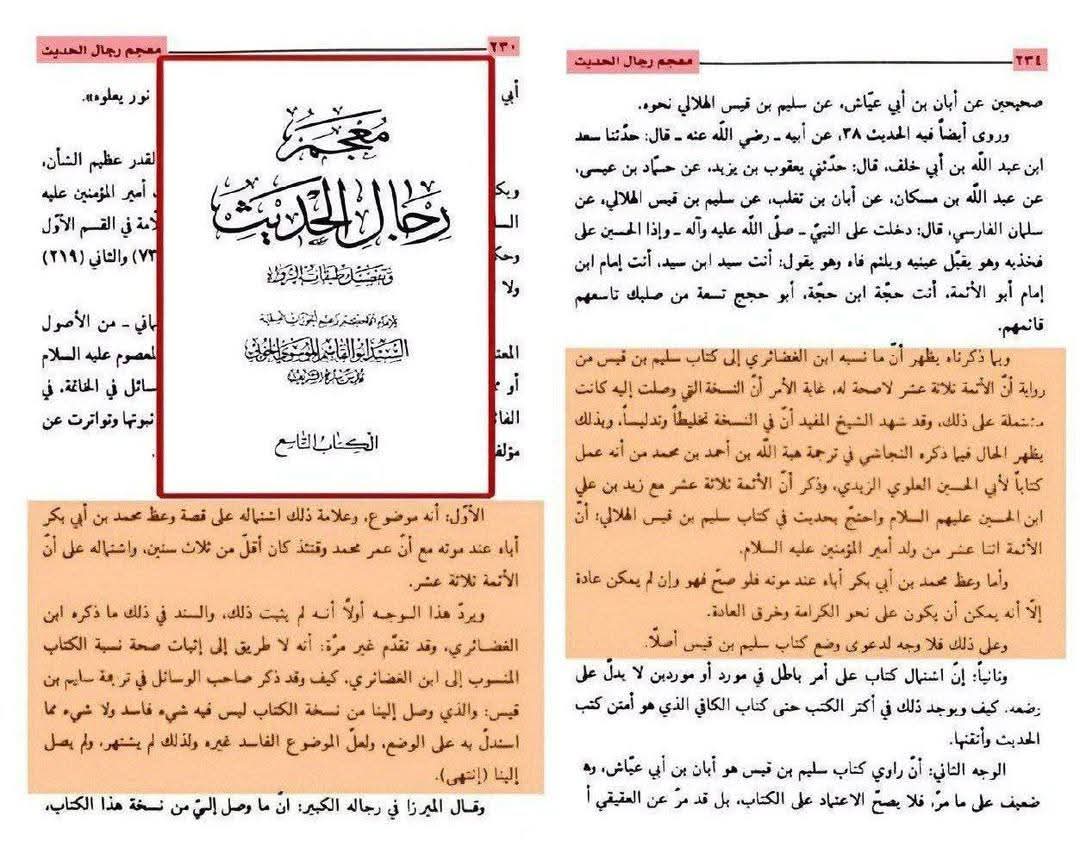 ٢٣٤ معجم رجال الحديث
صحيحين عن أبان بن أبي عيّاش، عن سليم بن قيس الهلالي نحوه.
وروى أيضاً فيه الحديث ٣٨، عن أبيه ـ رضي اللّه عنه ـ قال: حدّثنا سعد
ابن عبد اللّه بن أبي خلف، قال: حدّثني يعقوب بن يزيد، عن حمّاد بن عيسى،
عن عبد اللّه بن مسكان، عن أبان بن تغلب، عن سليم بن قيس الهلالي، عن
سلمان الفارسي، قال: دخلت على النبيّ ـ صلّى اللّه عليه وآله ـ وإذا الحسين على
فخذيه وهو يقبّل عينيه ويلثم فاه وهو يقول: أنت سيد ابن سيد، أنت إمام ابن
إمام أبو الأئمة، أنت حجّة ابن حجّة، أبو حجج تسعة من صلبك تاسعهم
قائمهم.
وبما ذكرناه يظهر أنّ ما نسبه ابن الغضائري إلى كتاب سليم بن قيس من
رواية أنّ الأئمة ثلاثة عشر لاصحة له، غاية الأمر أنّ النسخة التي وصلت إليه كانت
مشتملة على ذلك، وقد شهد الشيخ المفيد أنّ في النسخة تخليطاً وتدليساً، وبذلك
يظهر الحال فيما ذكره النجاشي في ترجمة هبة اللّه بن أحمد بن محمد من أنه عمل
كتاباً لأبي الحسين العلوي الزيدي، وذكر أنّ الأئمة ثلاثة عشر مع زيد بن علي
ابن الحسين عليهم السلام واحتجّ بحديث في كتاب سليم بن قيس الهلالي: أنّ
الأئمة اثنا عشر من ولد أمير المؤمنين عليه السلام.
وأما وعظ محمد بن أبي بكر أباه عند موته فلو صحّ فهو وإن لم يمكن عادة
إلّا أنه يمكن أن يكون على نحو الكرامة وخرق العادة.
وعلى ذلك فلا وجه لدعوى وضع كتاب سليم بن قيس أصلًا.
وثانياً: إنّ اشتمال كتاب على أمر باطل في مورد أو موردين لا يدلّ على
وضعه. كيف ويوجد ذلك في أكثر الكتب حتى كتاب الكافي الذي هو أمتن كتب
الحديث وأتقنها.
الوجه الثاني: أنّ راوي كتاب سليم بن قيس هو أبان بن أبي عيّاش، وه
ضعيف على ما مرّ، فلا يصحّ الاعتماد على الكتاب، بل قد مرّ عن العقيقي أ
٢٣٠ معجم رجال الحديث
أبي نور يعلوه».
لقدر عظيم الشأن،
أمير المؤمنين عليه
لّامة في القسم الأوّل
وحك ٧٣) والثاني (٢١٩)
ولا
ماني ـ من الأصول
المعت لمعصوم عليه السلام
أو سائل في الخاتمة، في
الفائ نبوتها وتواترت عن
مؤلف
معجم
رجال الحديث
وتفصيل طبقات الرواة
السيد أبو القاسم الموسوي الخوئي
قدس سره الشريف
الكتاب التاسع
الأوّل: أنه موضوع، وعلامة ذلك اشتماله على قصة وعظ محمد بن أبي بكر
أباه عند موته مع أنّ عمر محمد وقتئذ كان أقلّ من ثلاث سنين، واشتماله على أنّ
الأئمة ثلاثة عشر.
ويردّ هذا الوجه أولاً أنه لم يثبت ذلك، والسند في ذلك ما ذكره ابن
الغضائري، وقد تقدّم غير مرّة: أنه لا طريق إلى إثبات صحة نسبة الكتاب
المنسوب إلى ابن الغضائري، كيف وقد ذكر صاحب الوسائل في ترجمة سليم بن
قيس: والذي وصل إلينا من نسخة الكتاب ليس فيه شيء فاسد ولا شيء مما
استدلّ به على الوضع، ولعلّ الموضوع الفاسد غيره ولذلك لم يشتهر، ولم يصل
إلينا (إنتهى).
وقال الميرزا في رجاله الكبير: انّ ما وصل إليّ من نسخة هذا الكتاب،